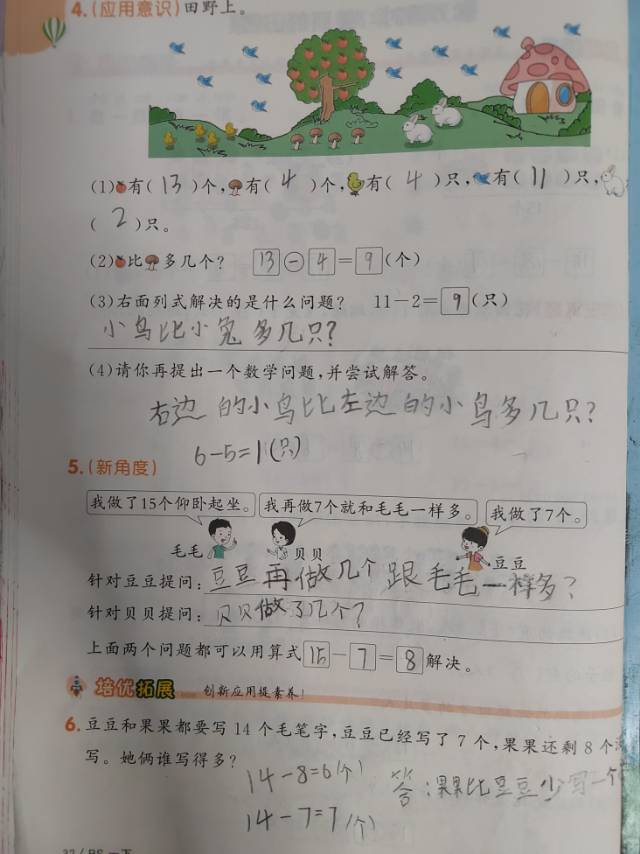 4.(应用意识)田野上。
(1)有( 13 )个,有( 4 )个,有( 4 )只,有( 11 )只,
( 2 )只。
(2)比多几个? 13-4=9(个)
(3)右面列式解决的是什么问题? 11-2=9(只)
小鸟比小兔多几只?
(4)请你再提出一个数学问题,并尝试解答。
右边的小鸟比左边的小鸟多几只?
6-5=1(只)
5.(新角度)
我做了15个仰卧起坐。 我再做7个就和毛毛一样多。 我做了7个。
毛毛 贝贝 豆豆
针对豆豆提问:豆豆再做几个跟毛毛一样多?
针对贝贝提问:贝贝做了几个?
上面两个问题都可以用算式15-7=8解决。
培优拓展 创新应用提素养!
6.豆豆和果果都要写14个毛笔字,豆豆已经写了7个,果果还剩8个
写。她俩谁写得多?
14-8=6(个) 答:果果比豆豆少写一个
14-7=7(个)